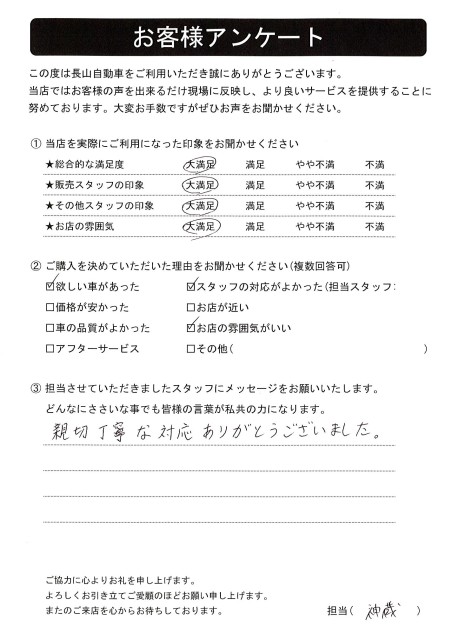 お客様アンケート
この度は長山自動車をご利用いただき誠にありがとうございます。
当店ではお客様の声を出来るだけ現場に反映し、より良いサービスを提供することに
努めております。大変お手数ですがぜひお声をお聞かせください。
① 当店を実際にご利用になった印象をお聞かせください
★総合的な満足度 大満足 満足 やや不満 不満
★販売スタッフの印象 大満足 満足 やや不満 不満
★その他スタッフの印象 大満足 満足 やや不満 不満
★お店の雰囲気 大満足 満足 やや不満 不満
② ご購入を決めていただいた理由をお聞かせください(複数回答可)
☑欲しい車があった ☑スタッフの対応がよかった(担当スタッフ:
□価格が安かった □お店が近い
□車の品質がよかった ☑お店の雰囲気がいい
□アフターサービス □その他( )
③ 担当させていただきましたスタッフにメッセージをお願いいたします。
どんなにささいな事でも皆様の言葉が私共の力になります。
親切丁寧な対応ありがとうございました。
ご協力に心よりお礼を申し上げます。
よろしくお引き立てご愛顧のほどお願い申し上げます。
またのご来店を心からお待ちしております。
担当( )